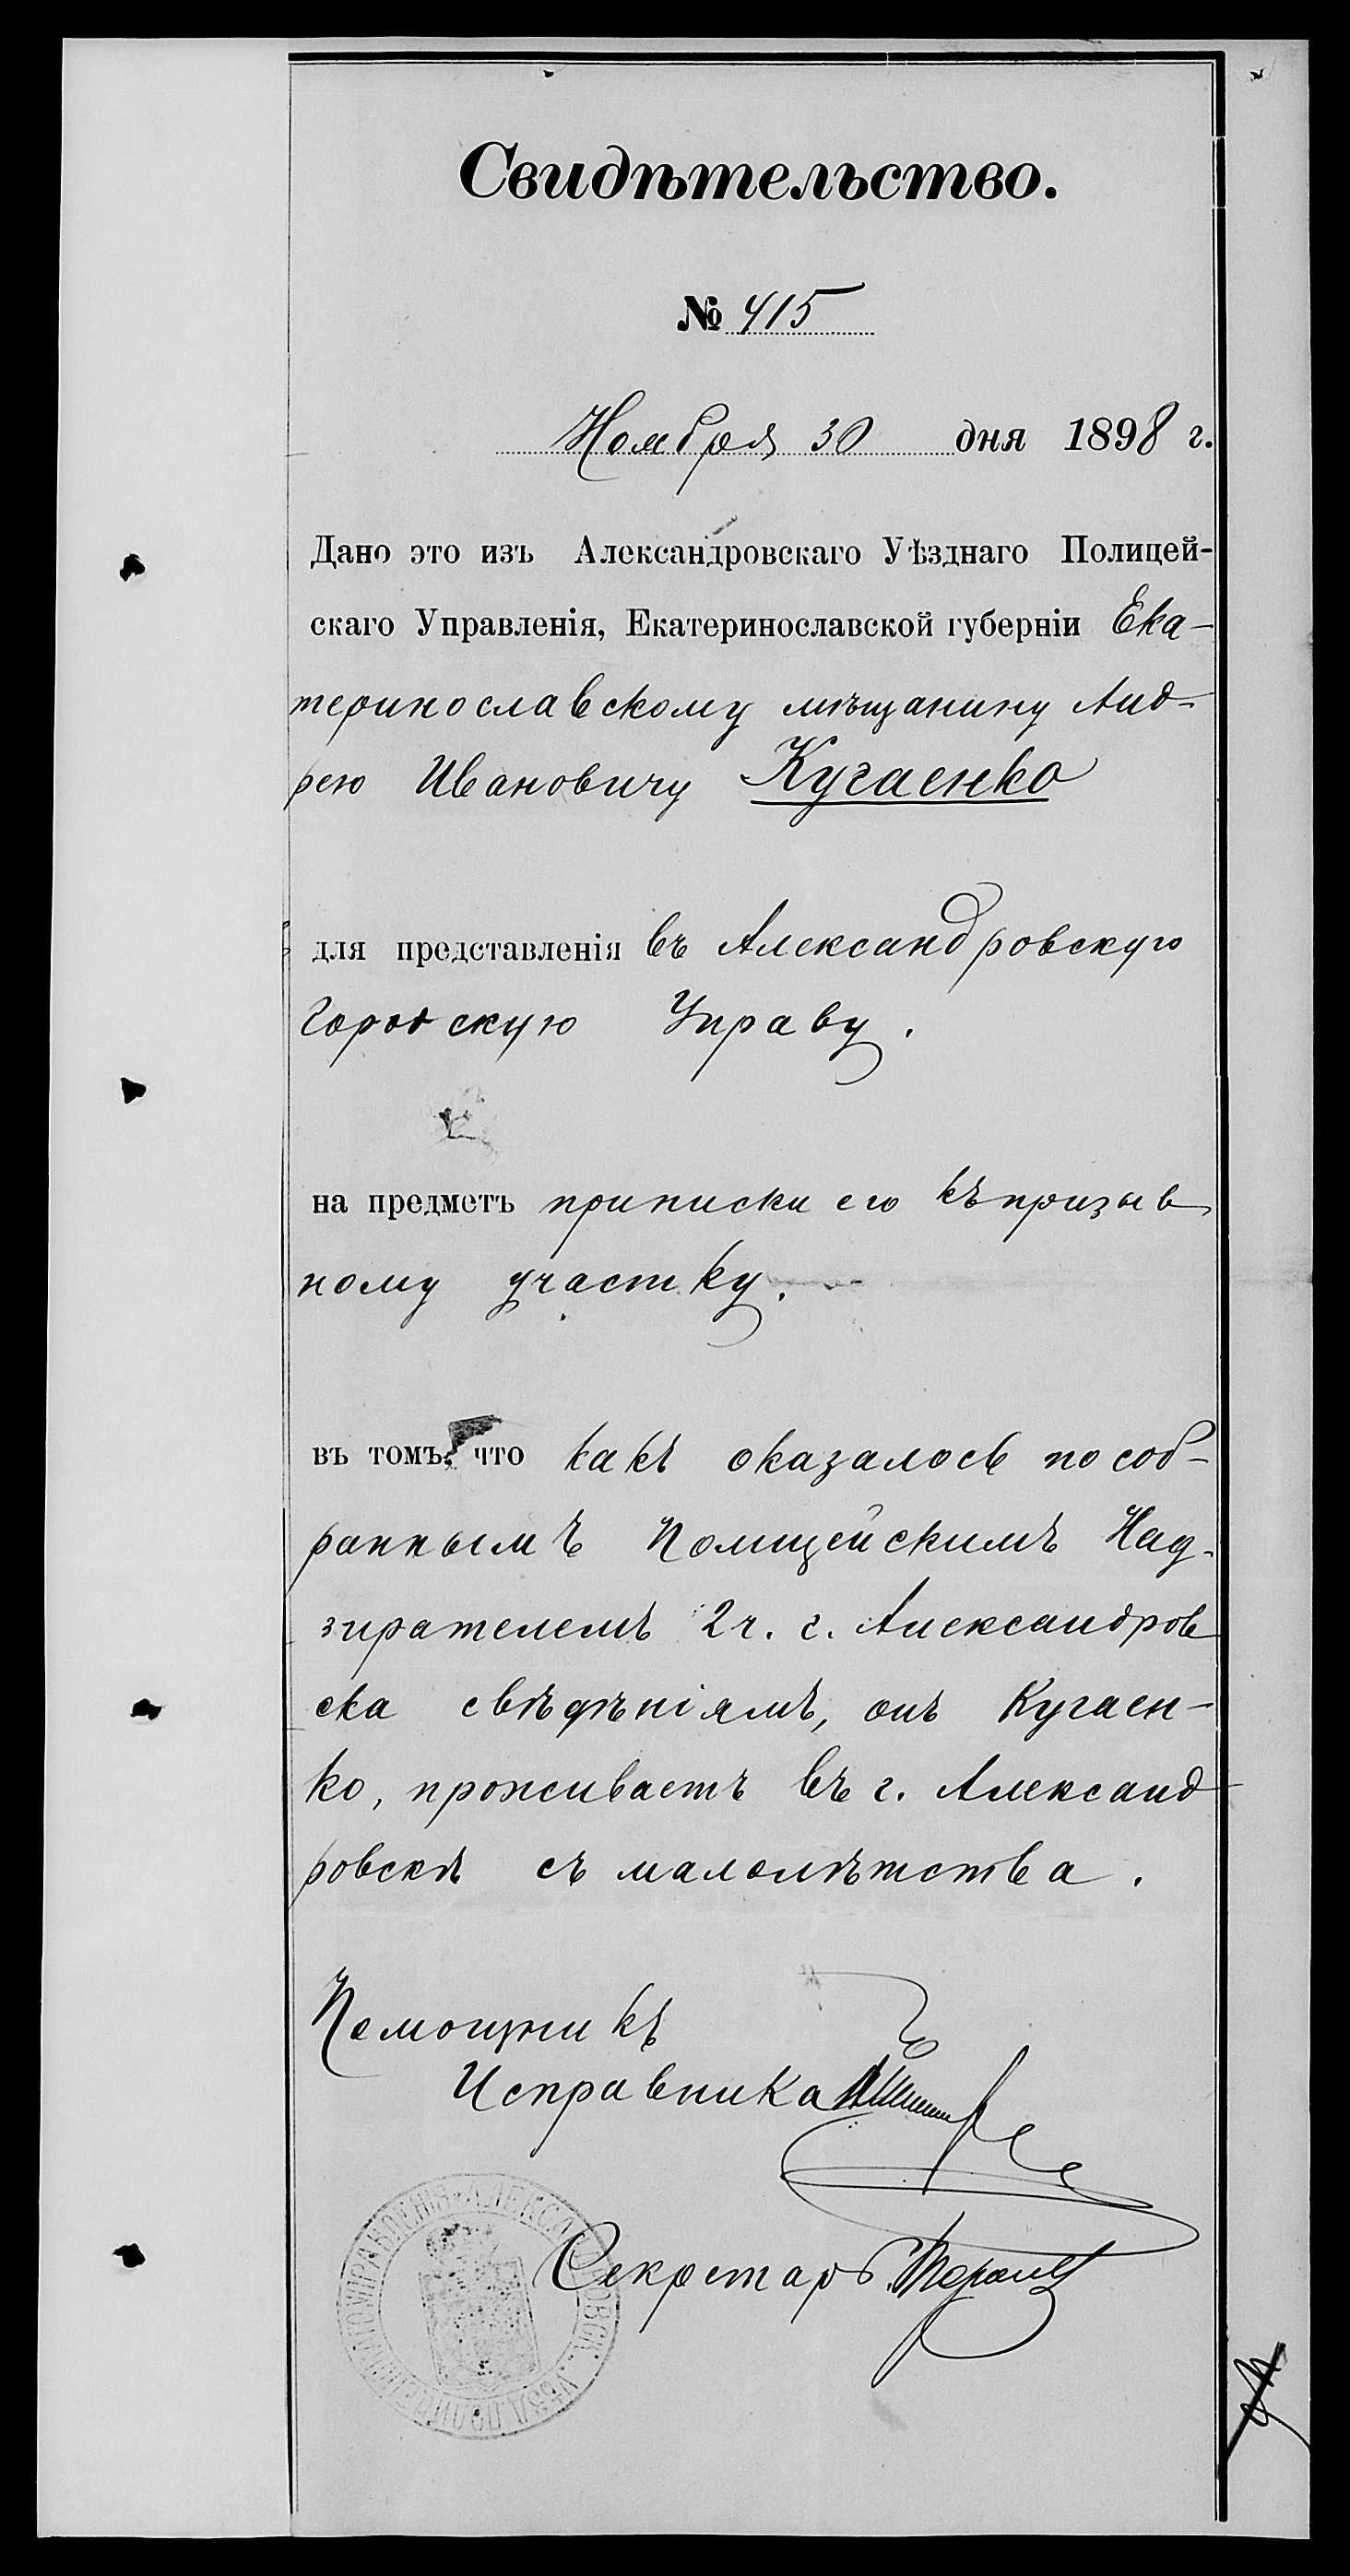 Свидѣтельство.
№ 415
Ноября 30 дня 1898 г.
Дано это изъ Александровскаго Уѣзднаго Полицей-
скаго Управленія, Екатеринославской губерніи Ека-
теринославскому мѣщанину Анд-
рею Ивановичу Кугаенко
для представленія въ Александровскую
Городскую Управу.
на предметъ приписки его къ призыв
ному участку.
въ томъ, что какъ оказалось по соб-
раннымъ Полицейскимъ Над-
зирателемъ 2 ч. г. Александров
ска свѣдѣніямъ, онъ Кугаен-
ко, проживаетъ въ г. Александ
ровскѣ съ малолѣтства.
Помощникъ
Исправника
Секретарь